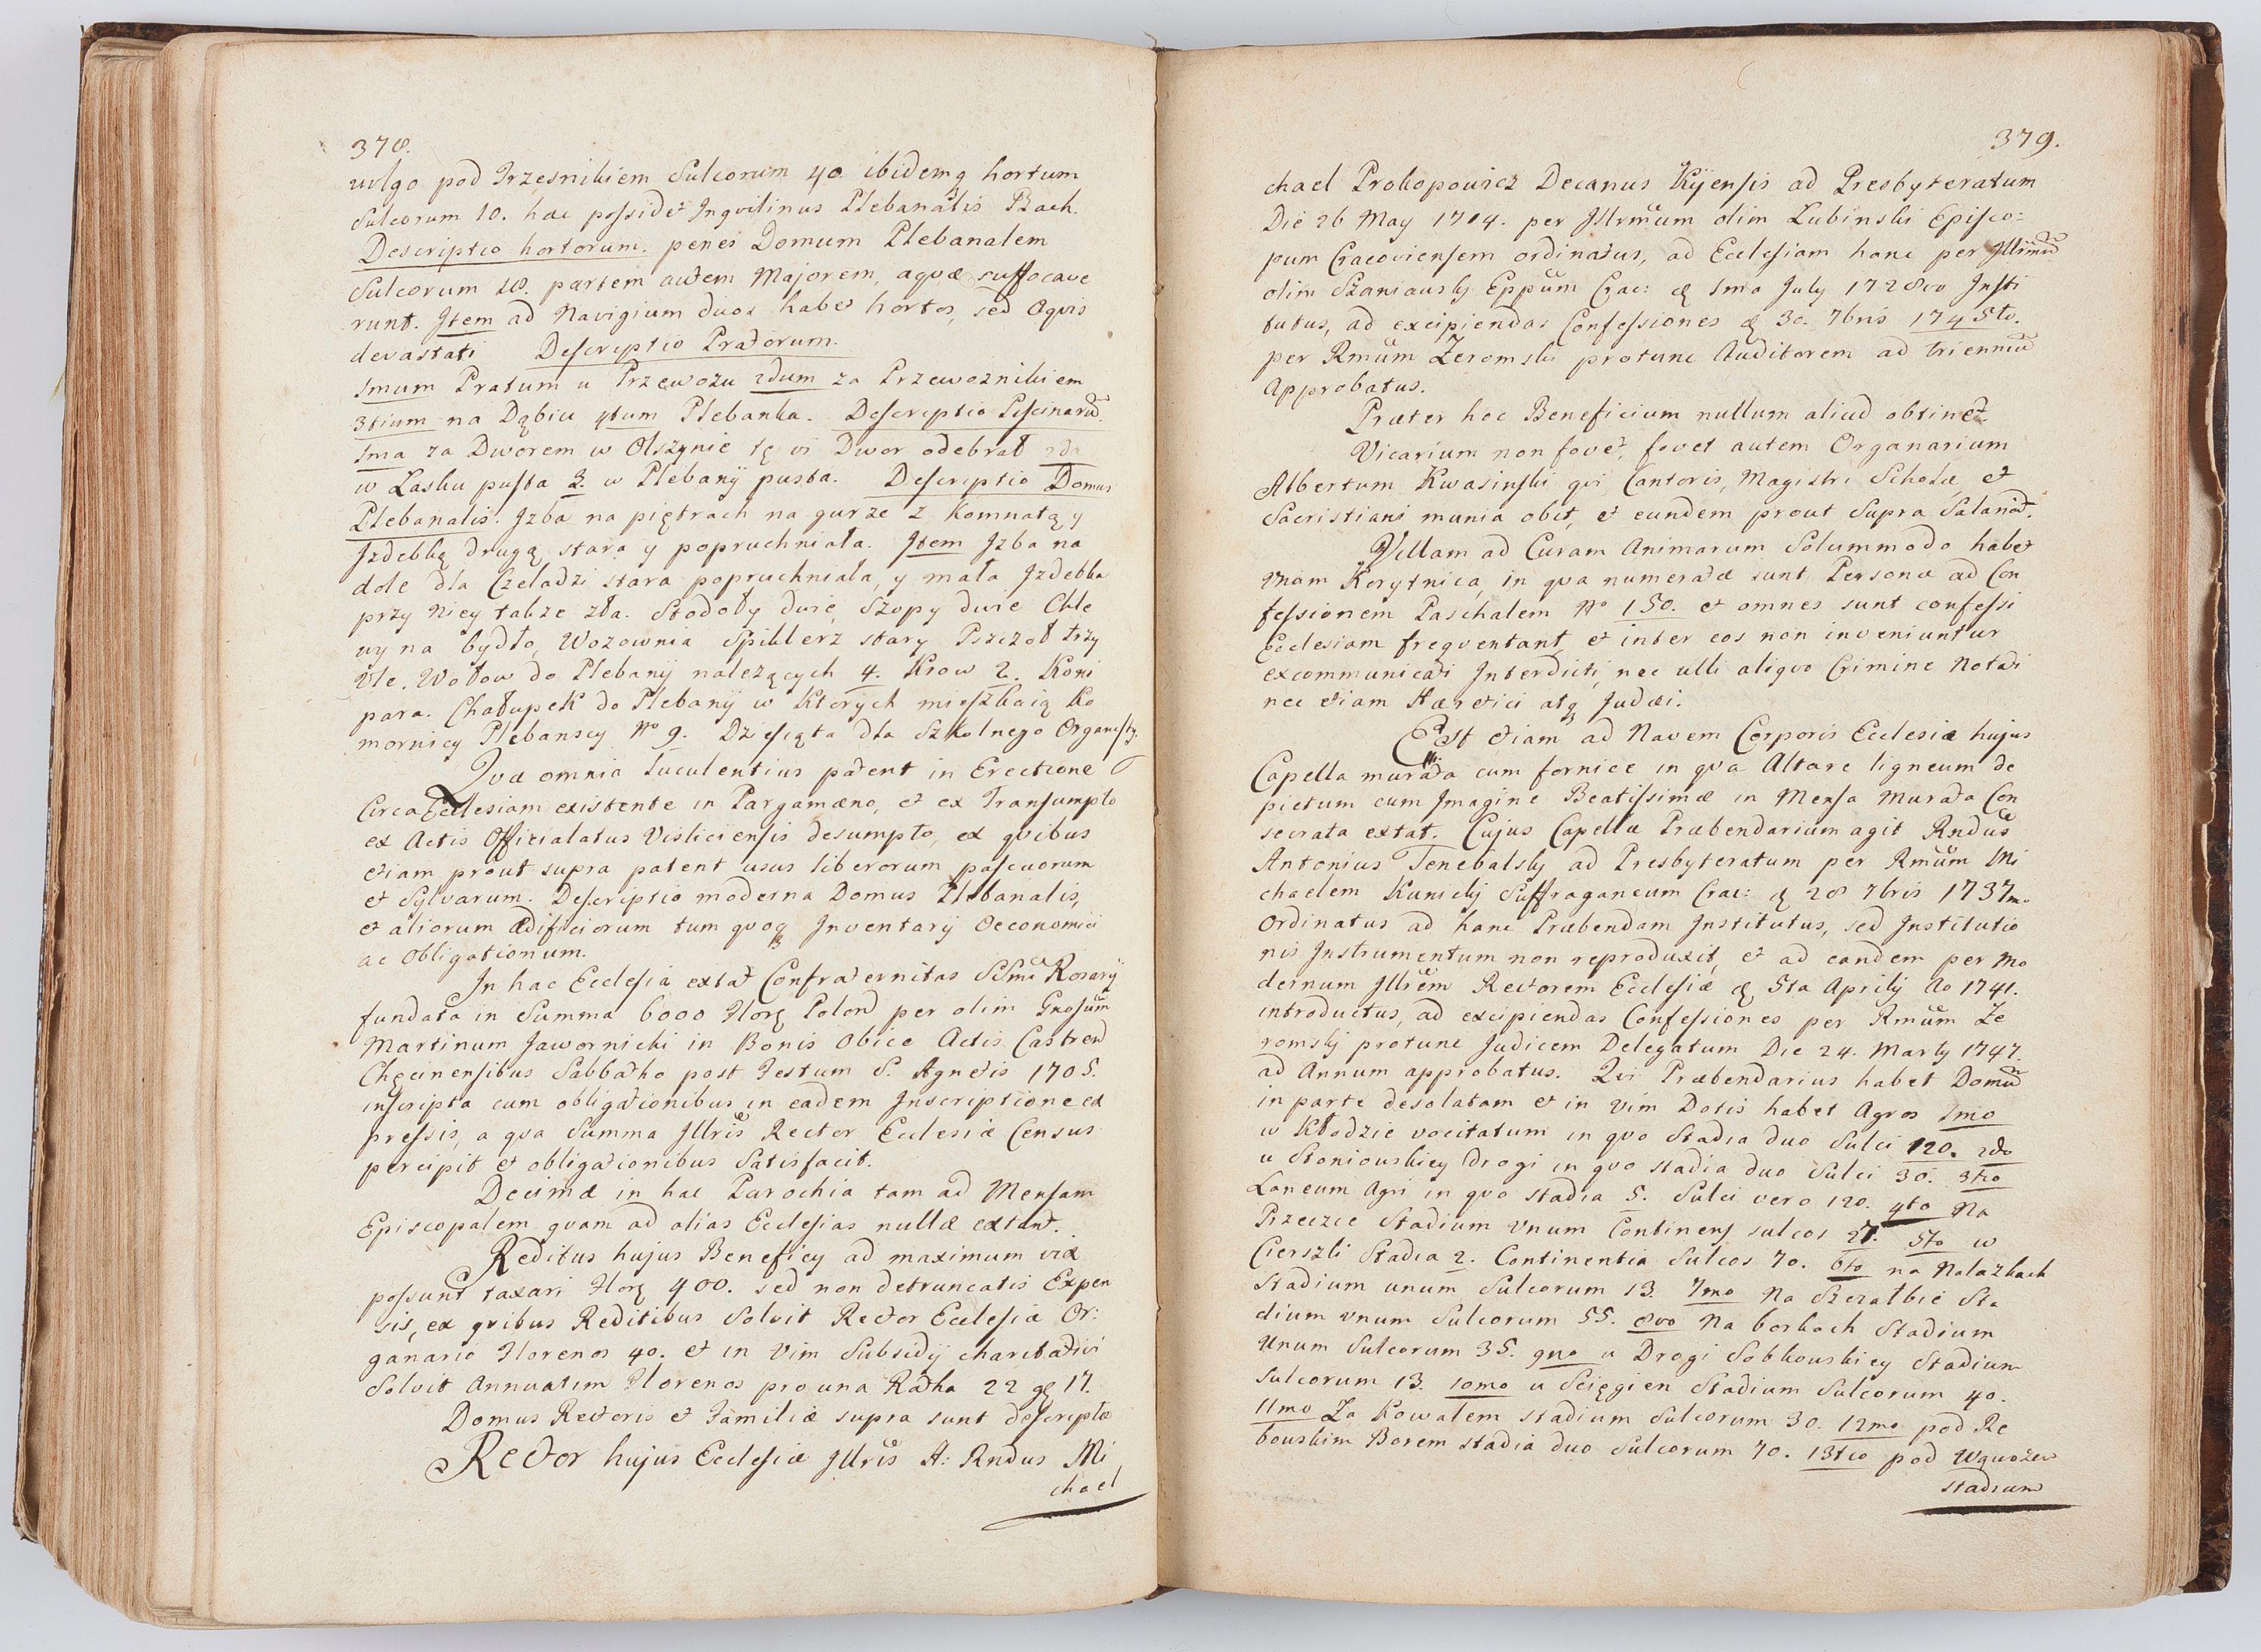 378.
vulgo pod Trzęsnikiem Sulcorum 40. ibidemq hortum
Sulcorum 10. hac possidet Inqvilinus Plebanalis Bach.
Descriptio hortorum. penes Domum Plebanalem
Sulcorum 18. partem autem Majorem, aqvæ suffocave
runt. Item ad Navigium duos habet hortos, sed Aqvis
devastati Descriptio Pratorum.
1mum Pratum u Przewozu 2dum za Przewoznikiem
3tium na Dąbiu 4tum Plebanka. Descriptio Piscinarũ.
1ma za Dworem w Olszynie tę ui Dwor odebrał 2da
w Lasku pusta 3. w Plebanÿ pusta. Descriptio Domus
Plebanalis. Izba na piętrach na gurze z Komnatą y
Izdebką drugą stara y popruchniała. Item Izba na
dole dla Czeladzi stara popruchniała, y mała Izdebka
przy niey takze zła. Stodoły dwie, Szopy dwie Chle
wy na bydło, Wozownia Spiklerz stary Pszczoł trzy
Ule. Wołow do Plebanÿ nalezących 4. Krow 2. Koni
para. Chałupek do Plebanÿ w Ktorych mieszkaią Ko
mornicy Plebanscy No 9. Dziesiąta dla Szkolnego Organisty.
Qvæ omnia luculentius patent in Erectione
Circa Ecclesiam existente in Pargamæno, et ex Transumpto
ex Actis Officialatus Visliciensis desumpto, ex qvibus
etiam prout supra patent usus liberorum pascuorum
et Sylvarum. Descriptio moderna Domus Plebanalis,
et aliorum ædificiorum tum qvoq Inventarÿ Oeconomici
ac Obligationum.
In hac Ecclesia extat Confraternitas SSmi Rosarÿ
fundata in Summa 6000 Flor Polond per olim Gnosum
Martinum Jawornicki in Bonis Obice Actis Castrend
Chęcinensibus Sabbatho post Festum S. Agnetis 1705.
inscripta cum obligationibus in eadem Inscriptione ex
pressis, a qva Summa Jllris Rector Ecclesiæ Census
percipit et obligationibus Satisfacit.
Decimæ in hac Parochia tam ad Mensam
Episcopalem qvam ad alias Ecclesias nullæ extant.
Reditus hujus Beneficy ad maximum vix
possunt taxari Flor 400. sed non detruncatis Expen
sis, ex qvibus Reditibus Solvit Rector Ecclesiæ Or:
ganario Florenos 40. et in Vim Subsidÿ charitativi
Solvit Annuatim Florenos pro una Ratha 22 gę 17.
Domus Rectoris et Familiæ supra sunt descriptæ
Rector hujus Ecclesiæ Jllris A: Rndus Mi
chael
379.
chael Prokopowicz Decanus Kÿensis ad Presbyteratum
Die 26 May 1714. per Jllrmum olim Lubinski Episco=
pum Cracoviensem ordinatus, ad Ecclesiam hanc per Jllrimũ
olim Szaniausky Eppum Crac: d 1ma July 1728vo Insti
tutus, ad excipiendas Confessiones d 30. 7bris 1745to.
per Rmum Zeromski protunc Auditorem ad trienniũ
Approbatus.
Præter hoc Beneficium nullum aliud obtinet
Vicarium non fovet, fovet autem Organarium
Albertum Kwasinski qvi Cantoris, Magistri Scholæ, et
Sacristiani munia obit, et eundem prout Supra Salariat.
Villam ad Curam Animarum Solummodo habet
Vnam Korytnica, in qva numeratæ sunt Personæ ad Con
fessionem Paschalem No 150. et omnes sunt confessi
Ecclesiam freqventant, et inter eos non inveniuntur
excommunicati Interdicti, nec ulli aliqvo Crimine Notati
nec etiam Hæretici atq Judæi.
Est etiam ad Navem Corporis Ecclesiæ hujus
Capella murata cum fornice in qva Altare ligneum de
pictum cum Imagine Beatissimæ in Mensa Murata Con
secrata extat. Cujus Capellæ Præbendarium agit Rndus
Antonius Tenebalsky ad Presbyteratum per Rmum Mi
chaelem Kunicky Suffraganeum Crac: d 28 7bris 1737mo
Ordinatus ad hanc Præbendam Institutus, sed Institutio
nis Instrumentum non reproduxit, et ad eandem per Mo
dernum Jllrem Rectorem Ecclesiæ d 5ta Aprily Ao 1741.
introductus, ad excipiendas Confessiones per Rmum Ze
romsky protunc Judicem Delegatum Die 24. Marty 1747.
ad Annum approbatus. Qvi Præbendarius habet Domũ
in parte desolatam et in vim Dotis habet Agros 1mo
w Kłodzie vocitatum in qvo Stadia duo Sulci 120. 2do
u Stoniouskiey Drogi in qvo stadia duo Sulci 30. 3tio
Laneum Agri in qvo stadia 5. Sulci vero 120. 4to Na
Przeczce Stadium Vnum Continens sulcos 27. 5to w
Cierszli Stadia 2. Continentia Sulcos 70. 6to na Nalazkach
Stadium unum Sulcorum 13. 7mo Na Szczałbie Sta
dium Vnum Sulcorum 55. 8vo Na borkach Stadium
Unum Sulcorum 35. 9no u Drogi Sobkouskiey Stadium
Sulcorum 13. 10mo u Scięgien Stadium Sulcorum 40.
11mo Za Kowalem stadium Sulcorum 30. 12mo pod Re
bouskim Borem stadia duo Sulcorum 70. 13tio pod Wąwozem
stadium